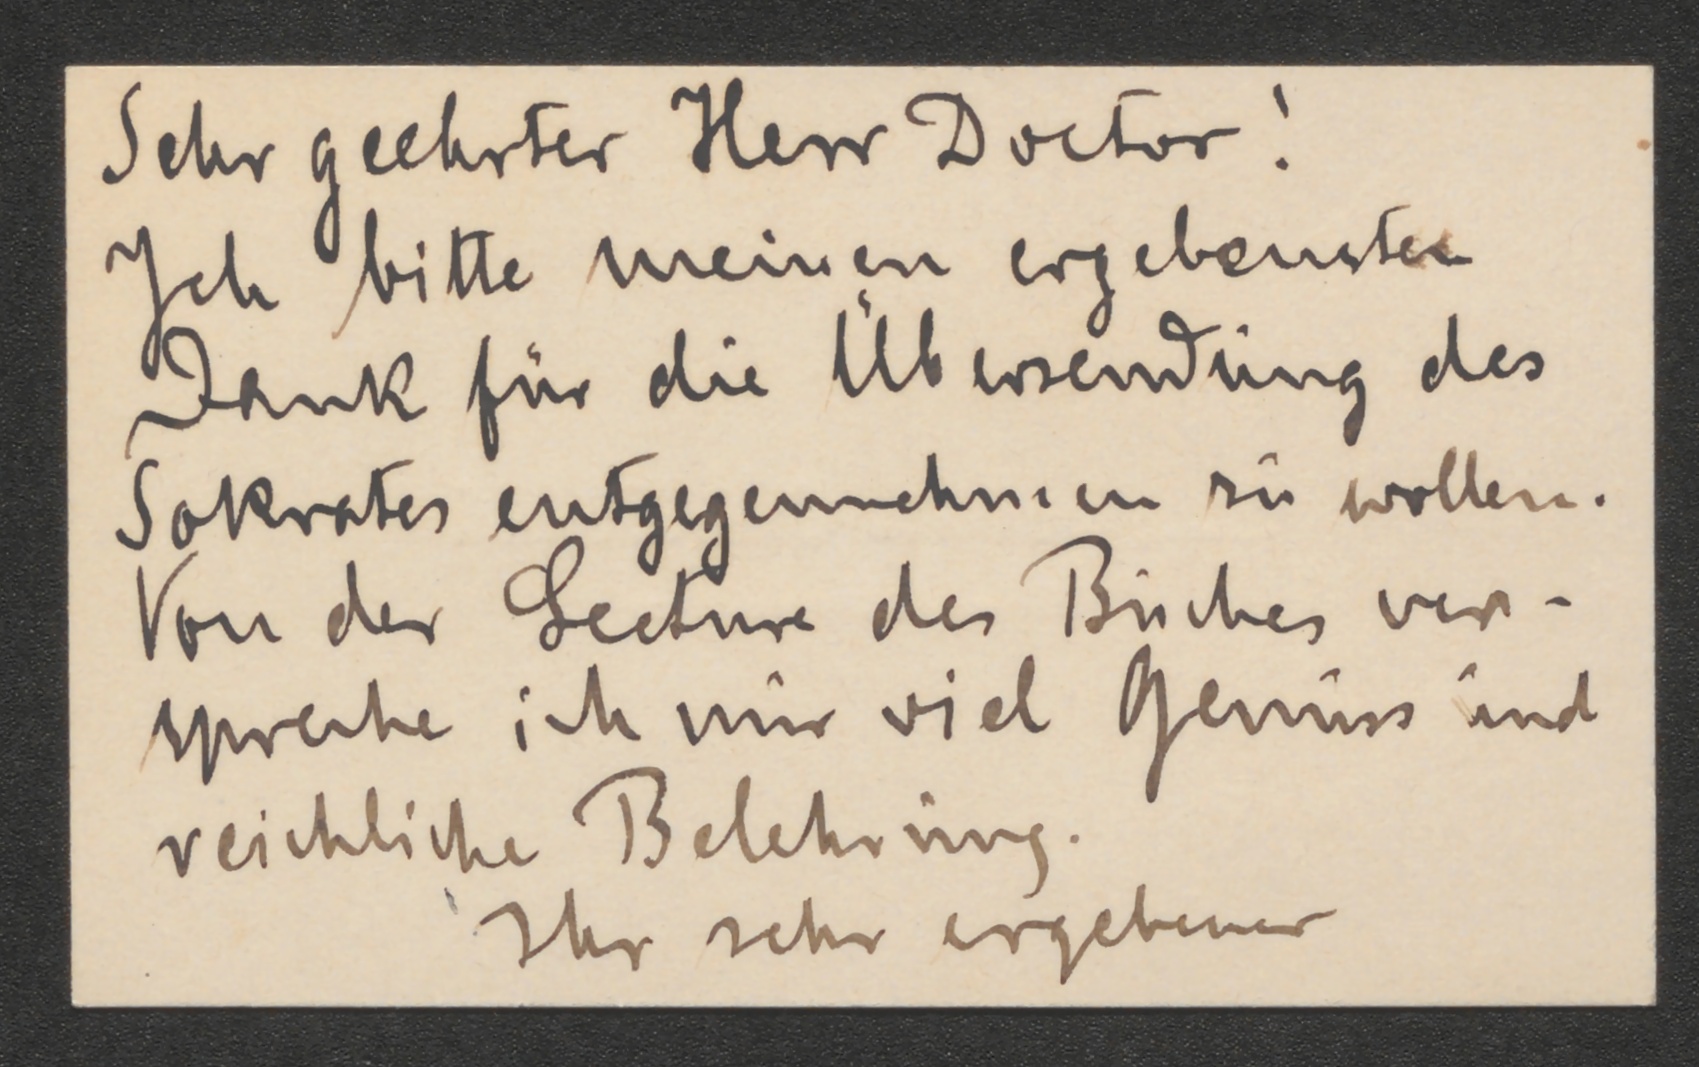 Sehr geehrter Herr Doctor!
Ich bitte meinen ergebensten
Dank für die Übersendung des
Sokrates entgegennehmen zu wollen.
Von der Lecture des Buches ver-
spreche ich mir viel Genuss und
reichliche Belehrung.
Ihr sehr ergebener